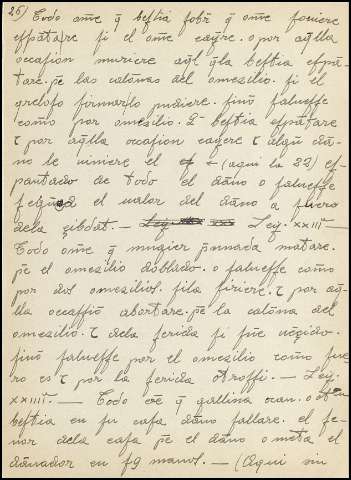 26) Todo ome q bestia sobr q ome soviere
espãtare si el ome cayre. o por aq̃lla
occasion muriere aq̃l q̃la bestia espã-
tare. pe las calonas del omezilio. si el
firmarlo pudiere. sino salvesse
como por omezilio. bestia espãtare
τ por aq̃lla occasion cayere τ algũ dã-
no le viniere el + (aqui la 22) es-
pantado de todo el daño o salvesse
segũd el valor del daño a fuero
dela cibdat. — Ley. xxiii —
Todo ome q̃ mugier p̃nnada matare.
pe el omezilio doblado. o salvesse como
por dos omezilios. sila firiere. τ por aq̃-
lla occasiõ abortare. pe la calona del
omezilio. τ dela ferida si fue vẽçido.
sino salvesse por el omezilio como fue
ro es τ por la ferida otrossi. — Ley.
xxiiii. — Todo oe q̃ gallina
bestia en su casa daño fallare. el se-
nor dela casa pe el daño o meta el
dañador en sq manos. — (Aqui sin